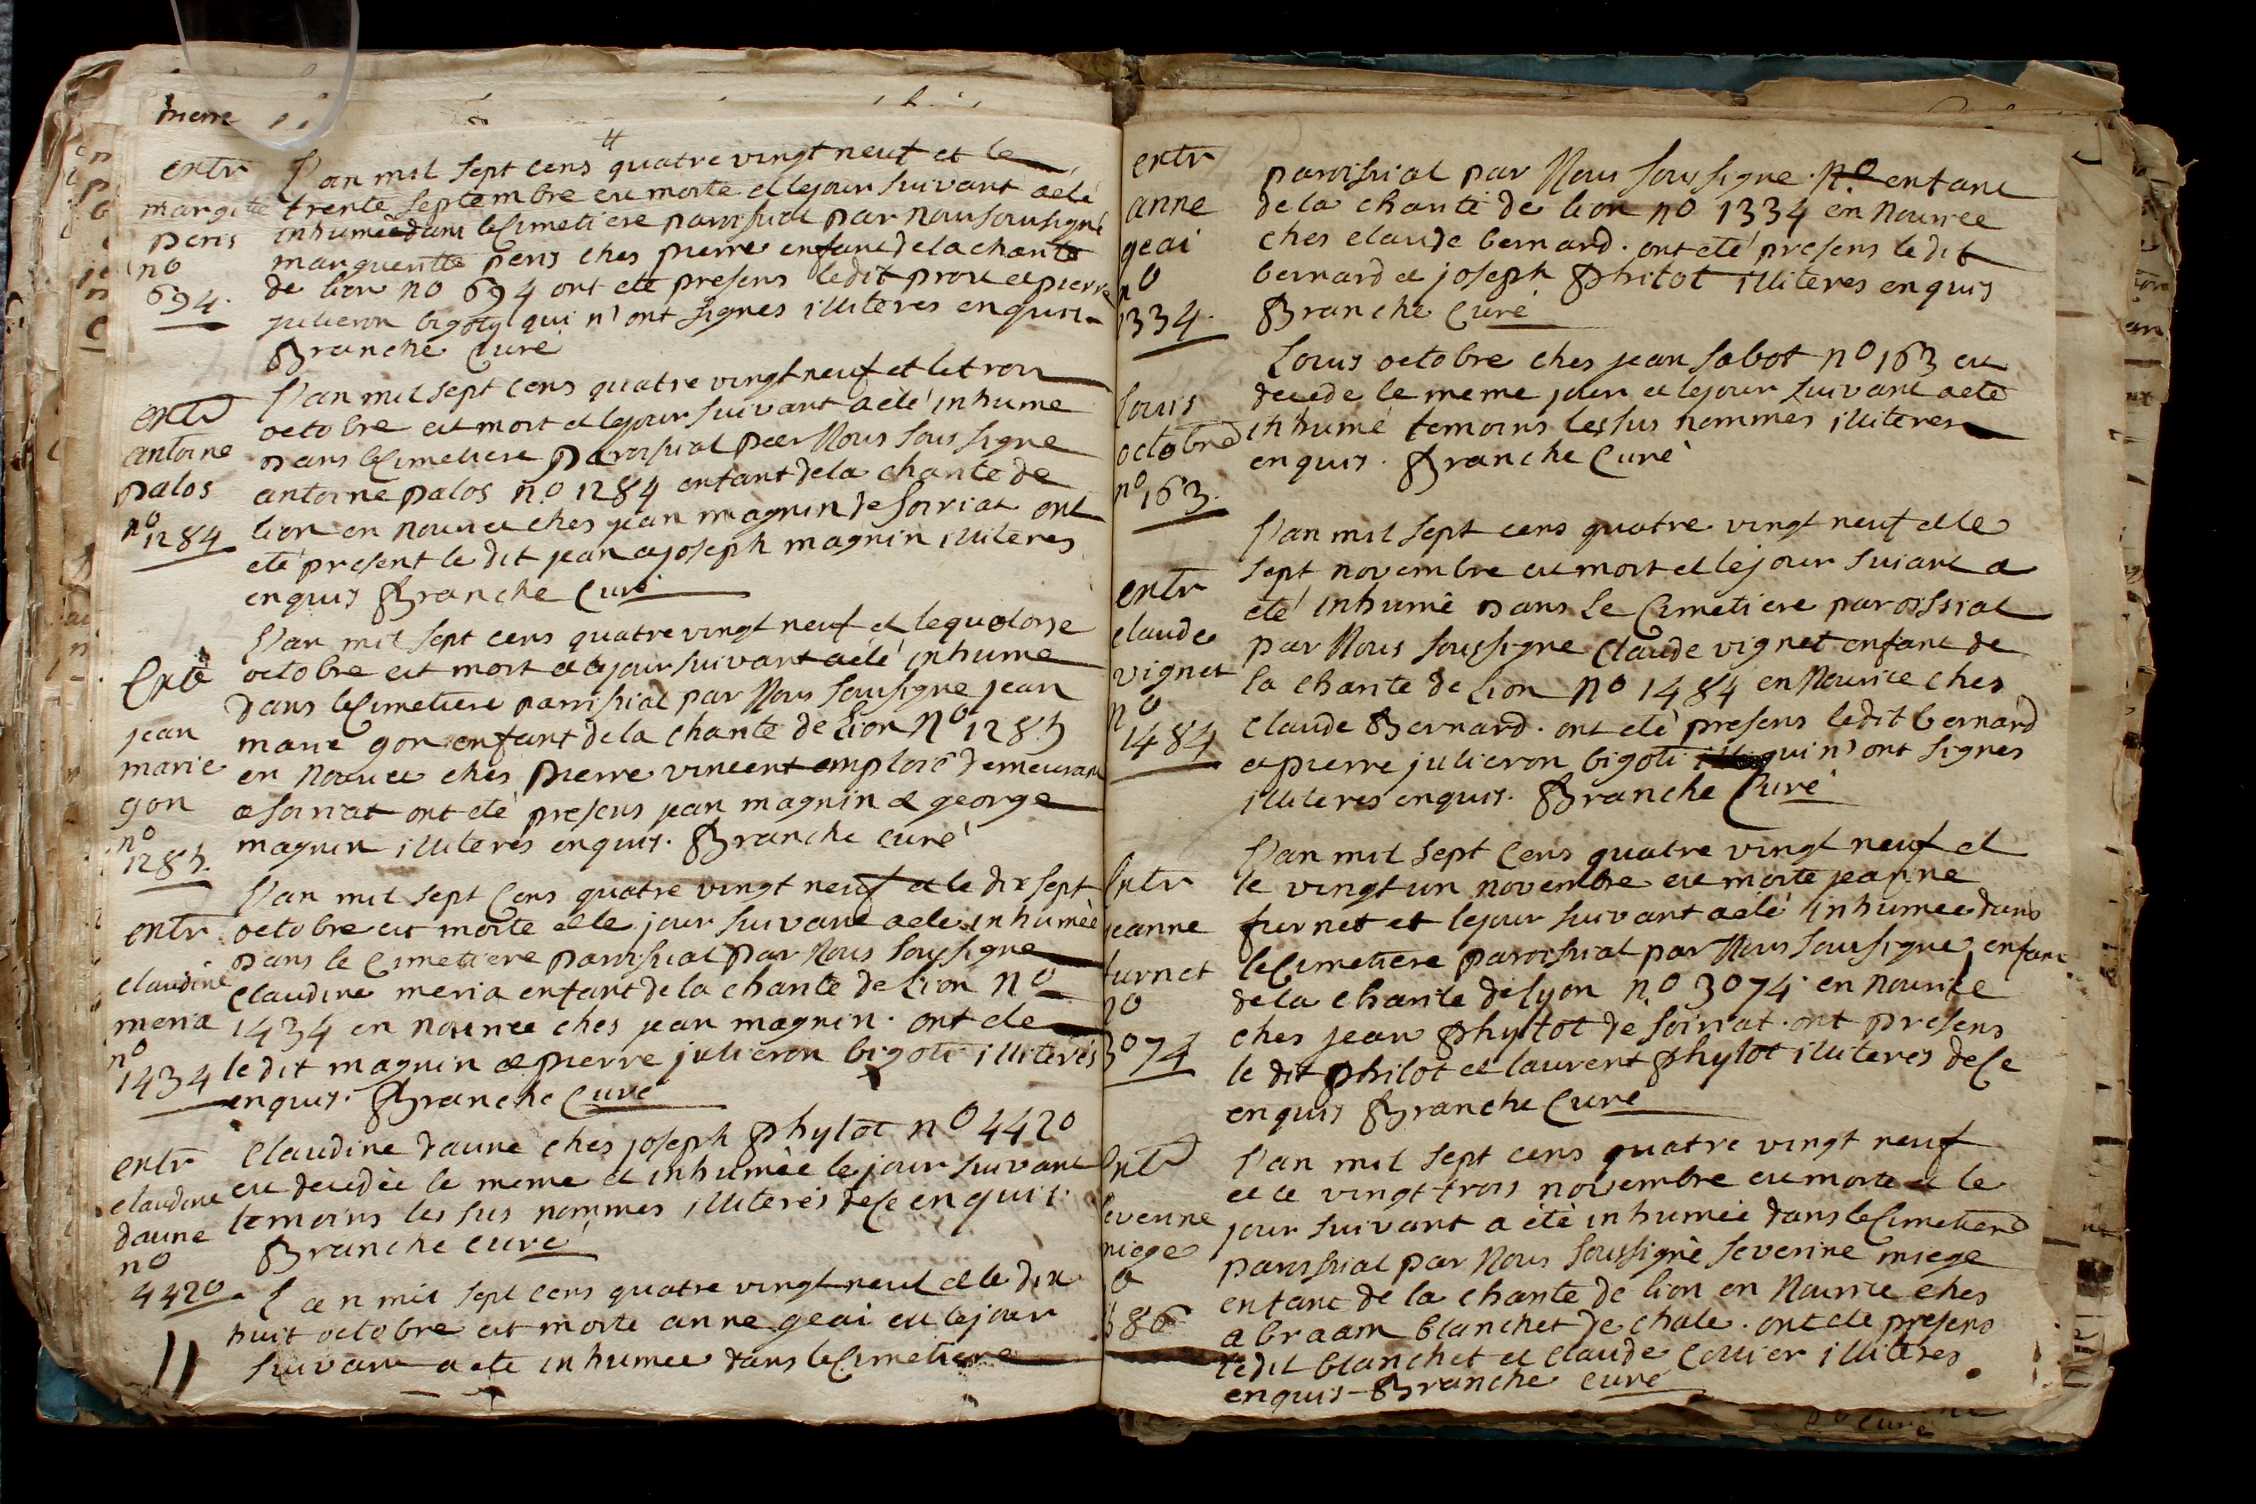 pierre
entr
margitte
peris
no
694.
L'an mil sept cens quatre vingt neuf et le
trente septembre est morte et le jour suivant a eté
inhumée dans le Cimetiere paroissial par nous soussigné
margueritte peris ches pierre enfant de la charité
de lion no 694 ont eté presens le dit prou et pierre
julieron bigoty qui n'ont signes illiteres enquis
Branche Curé
entr
antoine
palos
no 1284
L'an mil sept cens quatre vingt neuf et le trois
octobre est mort et le jour suivant a eté inhume
dans le Cimetiere Paroissial par Nous soussigne
antoine palos no 1284 enfant de la charite de
lion en nourice ches jean magnin de soiriat ont
eté present le dit jean et joseph magnin illiteres
enquis Branche Curé
Entr
jean
marie
gon
no
1285.
L'an mil sept cens quatre vingt neuf et le quatorse
octobre est mort et le jour suivant a eté inhume
dans le Cimetiere parrissial par Nous soussigne jean
marie gon enfant de la charite de Lion No 1285
en nourice ches pierre vincent emploié demeurant
a soiriat ont eté presens jean magnin et george
magnin illiteres enquis. Branche curé
entr
claudine
meria
no
1434
L'an mil sept cens quatre vingt neuf et le dix sept
octobre est morte et le jour suivant a eté inhumée
dans le Cimetiere paroissial par Nous soussigne
Claudine meria enfant de la charite de Lion No
1434 en nourice ches jean magnin. ont eté
le dit magnin et pierre julieron bigoti illiterés
enquis. Branche Curé
entr
claudine
daune
no
4420
Claudine daune ches joseph Phylot no 4420
est decedée le meme et inhumée le jour suivant
temoins les sus nommes illiterés de ce enquis.
Branche curé
L'an mil sept cens quatre vingt neuf et le dix
huit octobre est morte anne geai et le jour
suivant a ete inhumee dans le Cimetiere
entr
anne
geai
no
1334.
paroissial par Nous sous signe. no enfant
de la charité de lion no 1334 en nourice
ches claude bernard. ont eté presens le dit
bernard et joseph Philot illiteres enquis
Branche Curé
Louis
octobre
no 163.
Louis octobre ches jean sabot no 163 est
decede le meme jour et le jour suivant a eté
inhumé temoins les sus nommes illiteres
enquis. Branche Curé
entr
claude
vignet
no
1484
L'an mil sept cens quatre vingt neuf et le
sept novembre est mort et le jour suiant a
été inhumé dans le Cimetiere paroissial
par Nous soussigne Claude vignet enfant de
la charite de Lion No 1484 en Nourice ches
Claude Bernard. ont eté presens ledit bernard
et pierre julieron bigoti qui n'ont signes
illiteres enquis. Branche Curé
Entr
jeanne
furnet
no
3074
L'an mil sept cens quatre vingt neuf et
le vingt un novembre est morte jeanne
furnet et le jour suivant a eté inhumee dans
le Cimetiere paroissial par Nous soussigne, enfant
de la charite de lyon no 3074 en nourice
ches jean Phytot de soiriat. ont presens
le dit Philot et laurent Phylot illiteres de ce
enquis Branche Curé
Entr
severine
miege
o
586
L'an mil sept cens quatre vingt neuf
et le vingt trois novembre est morte et le
jour suivant a été inhumée dans le Cimetiere
paroissial par Nous soussigné severine miege
enfant de la charite de lion en Nourice ches
abraam blanchet de chale. ont eté presens
ledit blanchet et claude Collier illiteres
enquis - Branche curé